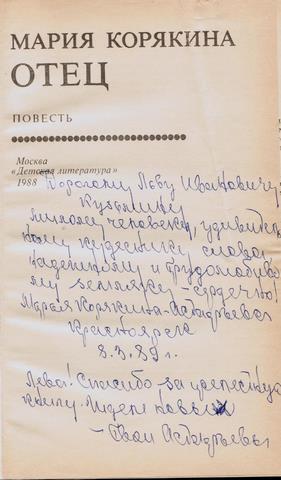 МАРИЯ КОРЯКИНА
ОТЕЦ
ПОВЕСТЬ
Москва
«Детская литература»
1988
Дорогому Леву Ивановичу
Кузьмину
милому человеку, удивитель
ному кудеснику слова,
надежному и трудолюбиво
му земляку – сердечно!
Мария Корякина-Астафьева
Красноярск
8.3.89 г.
Лева! Спасибо за
книгу. Ждем новых
– Твои Астафьевы